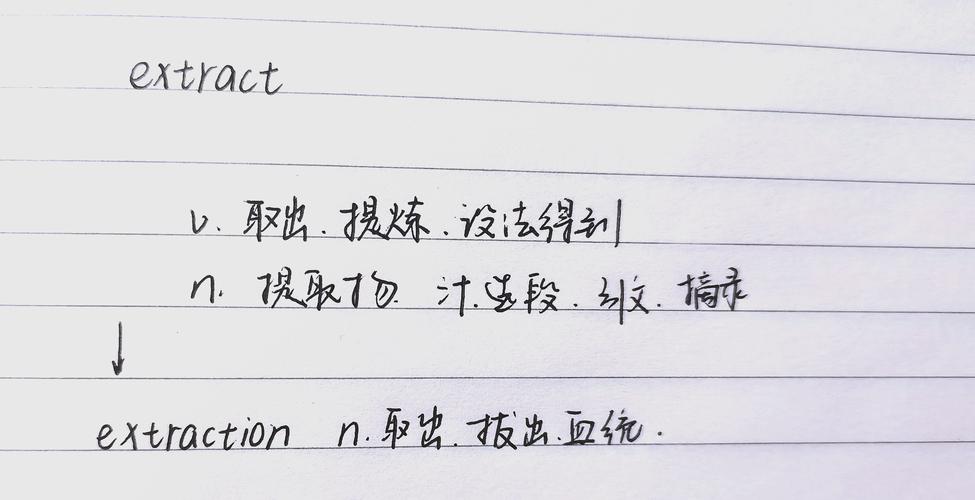 extract
v. 取出. 提炼. 设法得到
n. 提取物. 汁. 选段. 引文. 摘录
↓
extraction n. 取出. 拔出. 血统.